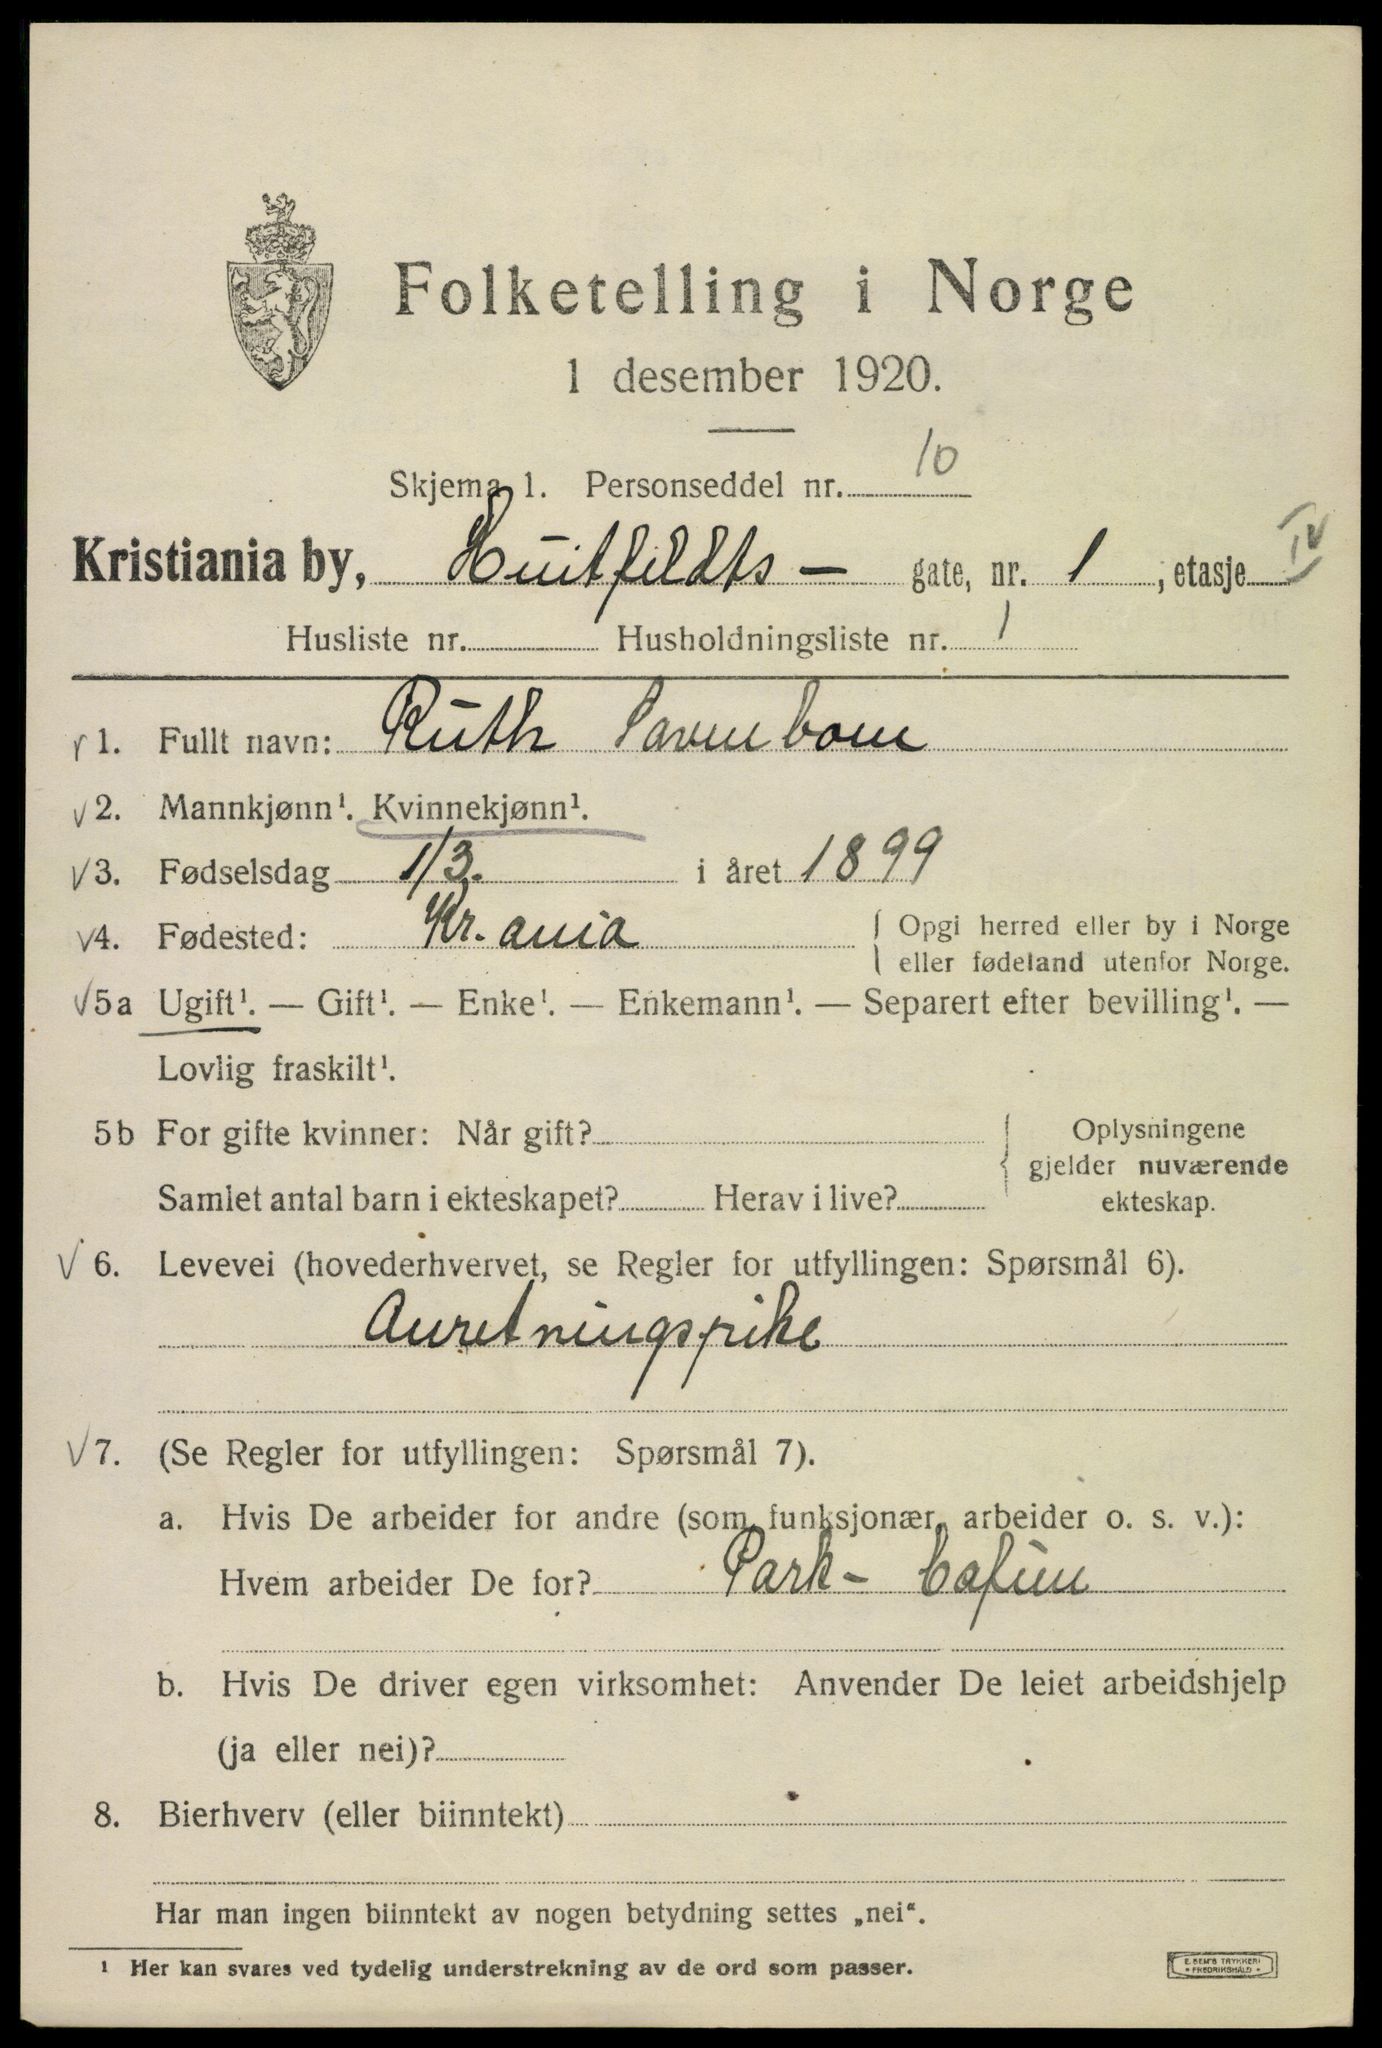 Folketelling i Norge
1 desember 1920.
Skjema 1. Personseddel nr. 10
Kristiania by, Huitfeldts - gate, nr. 1, etasje IV
Husliste nr. Husholdningsliste nr. 1
1. Fullt navn: Ruth
2. Mannkjønn¹. Kvinnekjønn¹.
3. Fødselsdag 1/3. i året 1899
4. Fødested: Kr.ania { Opgi herred eller by i Norge
eller fødeland utenfor Norge.
5a Ugift¹. — Gift¹. — Enke¹. — Enkemann¹. — Separert efter bevilling¹. —
Lovlig fraskilt¹.
5b For gifte kvinner: Når gift? { Oplysningene
gjelder nuværende
Samlet antal barn i ekteskapet? Herav i live? ekteskap.
6. Levevei (hovederhvervet, se Regler for utfyllingen: Spørsmål 6).
Anretningspike
7. (Se Regler for utfyllingen: Spørsmål 7).
a. Hvis De arbeider for andre (som funksjonær, arbeider o. s. v.):
Hvem arbeider De for? Park-Cafeen
b. Hvis De driver egen virksomhet: Anvender De leiet arbeidshjelp
(ja eller nei)?
8. Bierhverv (eller biinntekt)
Har man ingen biinntekt av nogen betydning settes „nei“.
¹ Her kan svares ved tydelig understrekning av de ord som passer.
E. SEM'S TRYKKERI
• FREDRIKSHALD •